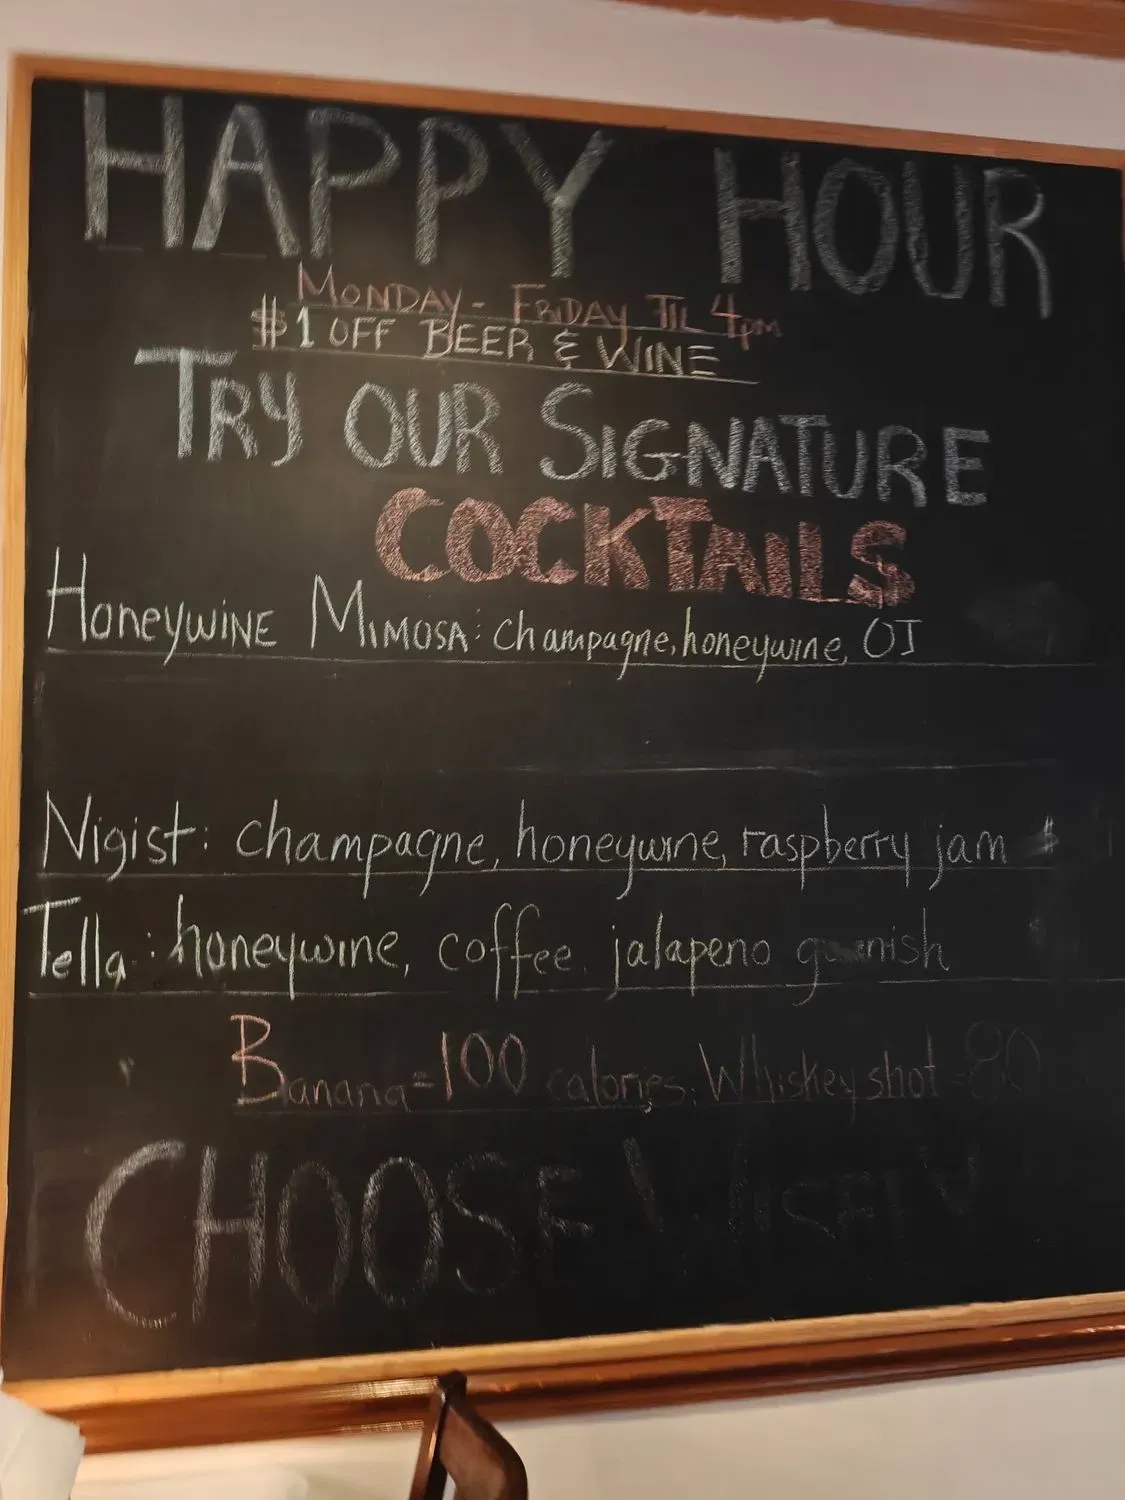 HAPPY HOUR
MONDAY - FRIDAY TIL 4pm
$1 OFF BEER & WINE
TRY OUR SIGNATURE
COCKTAILS
HONEYWINE MIMOSA: champagne, honeywine, OJ
Nigist: champagne, honeywine, raspberry jam $
Tella: honeywine, coffee, jalapeno garnish
Banana=100 calories. Whiskey shot=80
CHOOSE WISELY